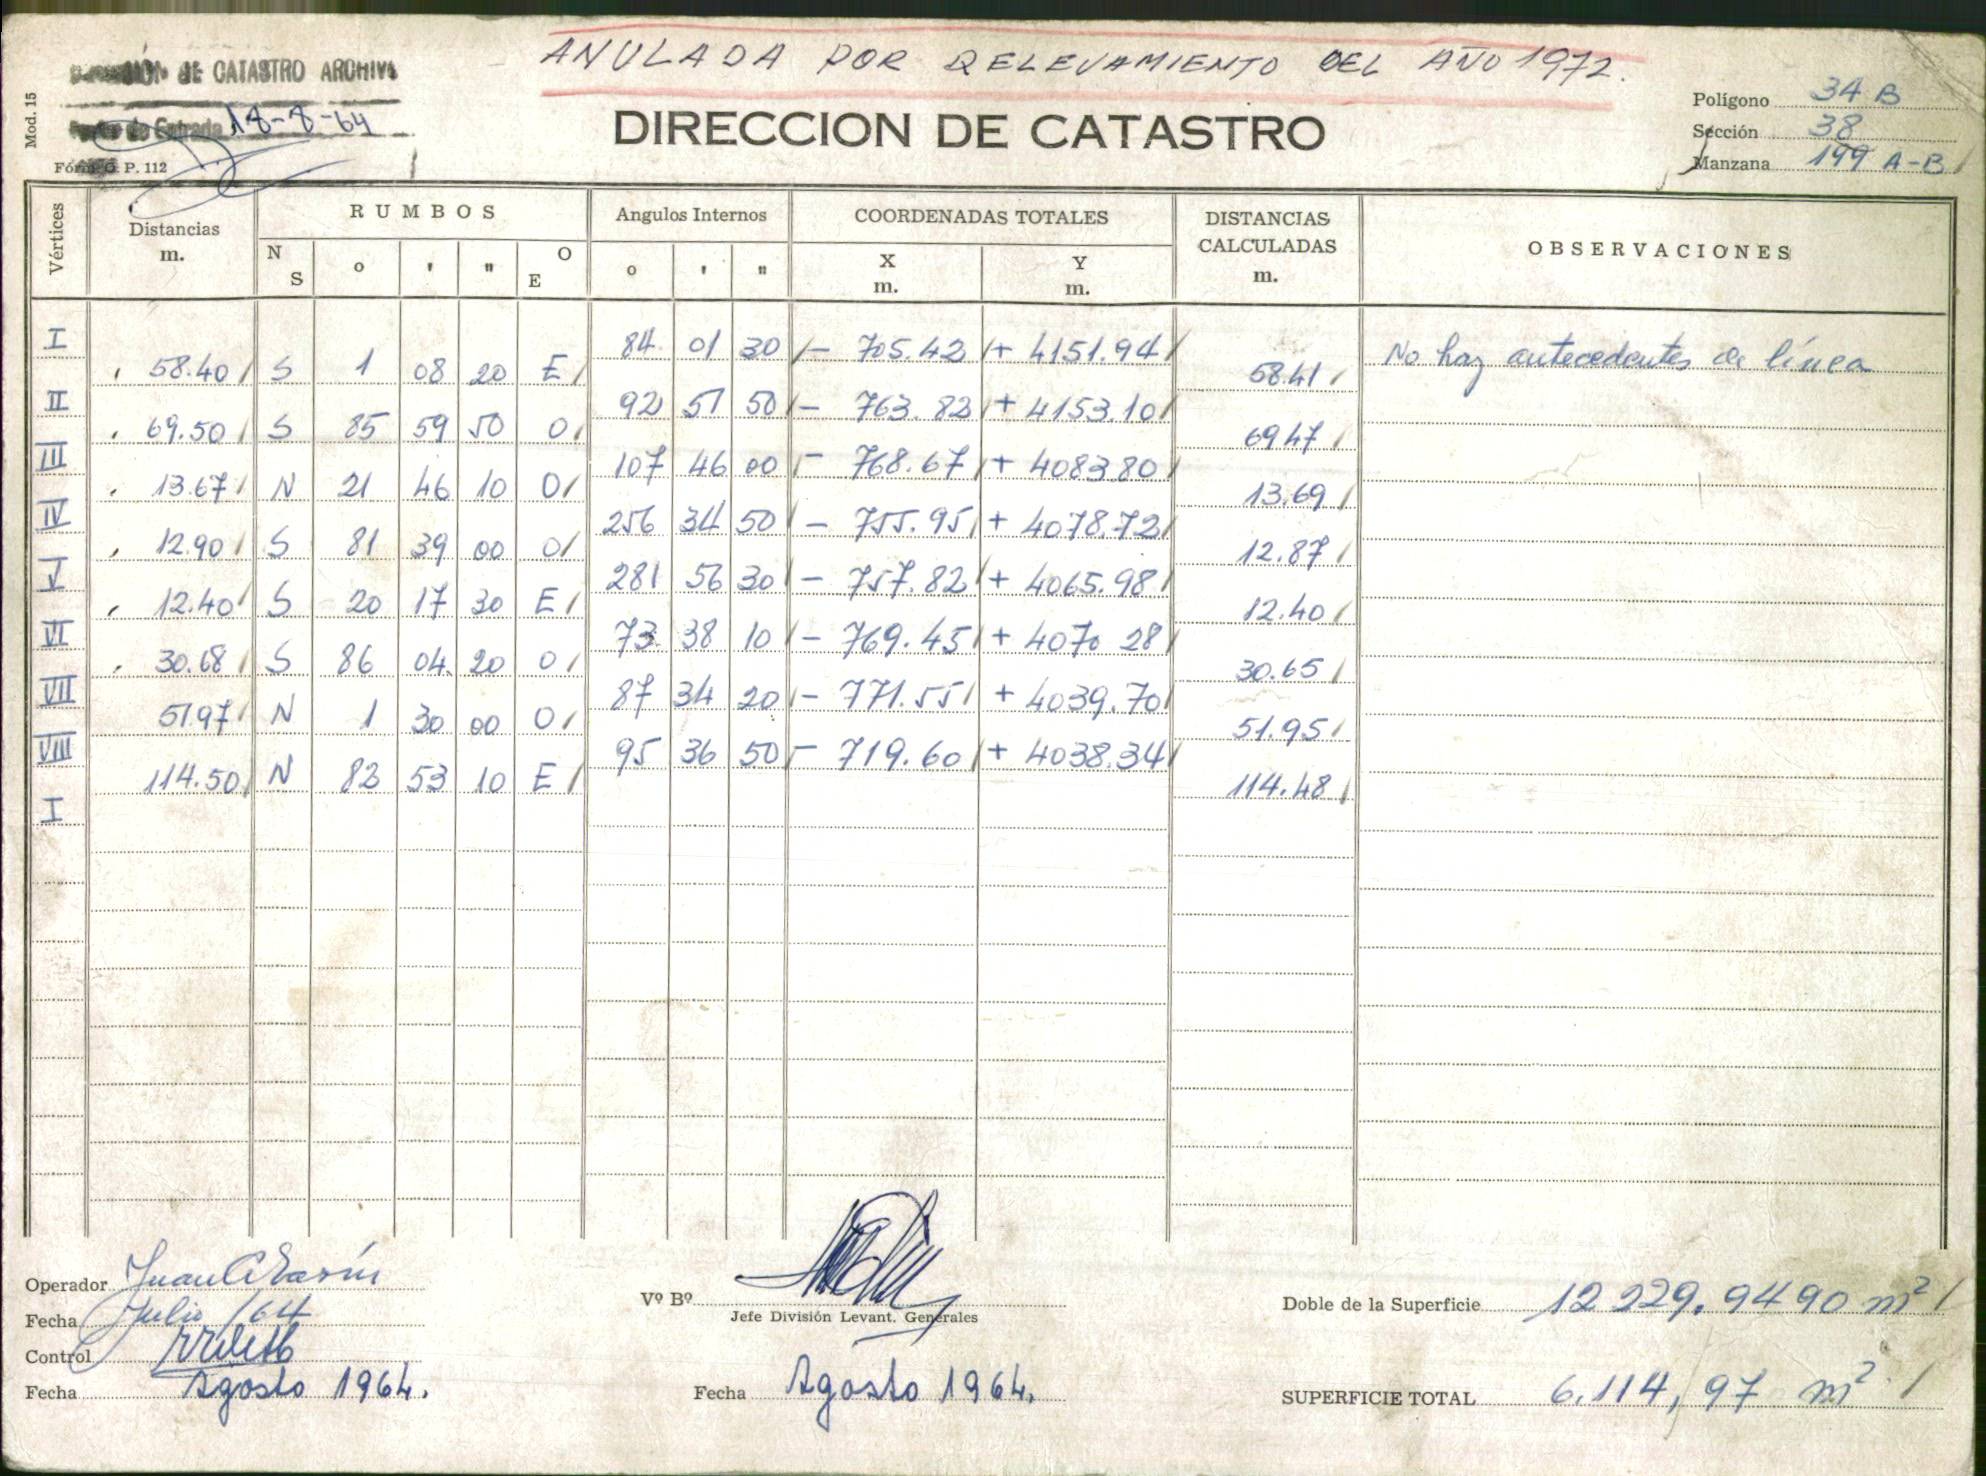 ANULADA POR RELEVAMIENTO DEL AÑO 1972.
DE CATASTRO ARCHIVO
de Entrada 18-8-64
Mod. 15
Fórm. O. P. 112
DIRECCION DE CATASTRO
Polígono 34 B
Sección 38
Manzana 199 A-B
Vértices Distancias m. RUMBOS N S o ' " O E Angulos Internos o ' " COORDENADAS TOTALES X m. Y m. DISTANCIAS CALCULADAS m. OBSERVACIONES
I 84 01 30 - 705.42 + 4151.94 No hay antecedentes de línea
58.40 S 1 08 20 E 58.41
II 92 51 50 - 763.82 + 4153.10
69.50 S 85 59 50 O 69.47
III 107 46 00 - 768.67 + 4083.80
13.67 N 21 46 10 O 13.69
IV 256 34 50 - 755.95 + 4078.72
12.90 S 81 39 00 O 12.87
V 281 56 30 - 757.82 + 4065.98
12.40 S 20 17 30 E 12.40
VI 73 38 10 - 769.45 + 4070 28
30.68 S 86 04 20 O 30.65
VII 87 34 20 - 771.55 + 4039.70
51.97 N 1 30 00 O 51.95
VIII 95 36 50 - 719.60 + 4038.34
114.50 N 82 53 10 E 114.48
I
Operador Juan
Fecha Julio /64
Control
Fecha Agosto 1964.
Vº Bº
Jefe División Levant. Generales
Fecha Agosto 1964.
Doble de la Superficie 12 229.9490 m²
SUPERFICIE TOTAL 6.114,97 m²